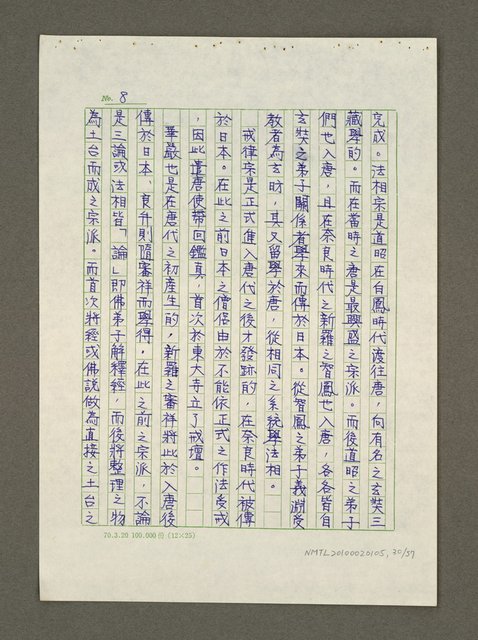 No. 8
完成。法相宗是道昭在白鳳時代渡往唐，向有名之玄奘三
藏學的。而在當時之唐是最興盛之宗派。而後道昭之弟子
們也入唐，且在奈良時代之新羅之智鳳也入唐，各各皆自
玄奘之弟子關係者學來而傳於日本。從智鳳之弟子義淵受
教者為玄昉，其又留學於唐，從相同之系統學法相。
戒律宗是正式進入唐代之後才發跡的，在奈良時代被傳
於日本。在此之前日本之僧侶由於不能依正式之作法受戒
，因此遣唐使帶回鑑真，首次於東大寺立了戒壇。
華嚴也是在唐代之初產生的，新羅之審祥將此於入唐後
傳於日本，良弁則隨審祥而學得，在此之前之宗派，不論
是三論或法相皆「論」即佛弟子解釋經，而後將整理之物
為土台而成之宗派。而首次將經或佛說做為直接之土台之
70.3.20 100.000份 (12×25)
NMTL20100020105, 30/57